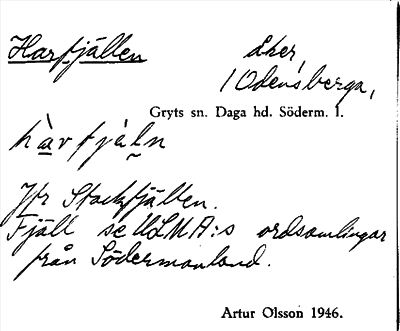 Harfjällen
åker,
i Odensberga,
Gryts sn. Daga hd. Söderm. l.
hàrfjäln
Jfr Stackfjällen.
Fjäll se ULMA:s ordsamlingar
från Södermanland.
Artur Olsson 1946.